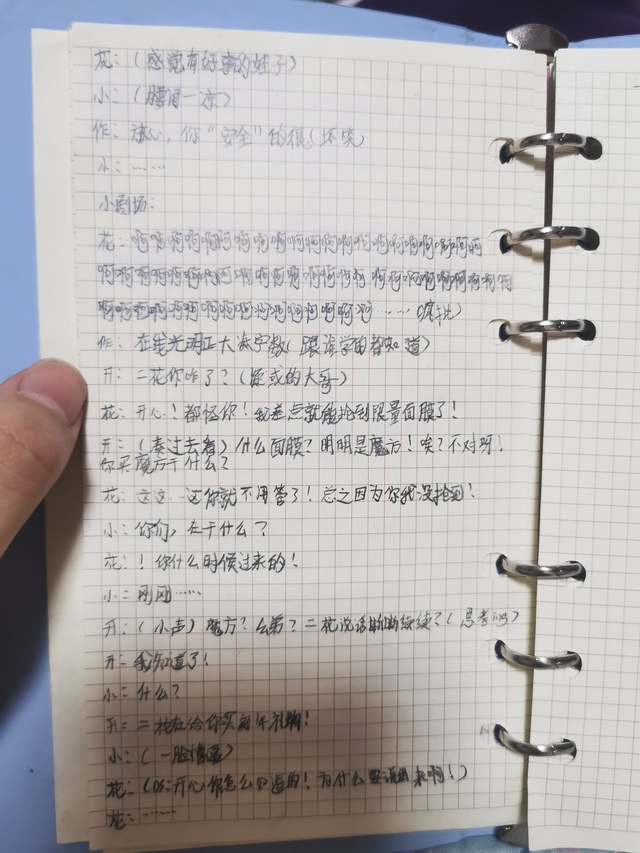 花：（感觉有好事的娃子）
小：（腰间一凉）
作：放心，你“安全”的很（坏笑）
小：……
小剧场：
花：啊啊啊啊啊啊啊啊啊啊啊啊啊啊啊啊啊啊啊啊
啊啊啊啊啊啊啊啊啊啊啊啊啊啊啊啊啊啊啊啊啊啊
啊啊啊啊啊啊啊啊啊啊啊啊啊啊啊……（疯狂）
作：在线光明正大凑字数（跟谁学的都知道）
开：二花你咋了？（疑惑的大哥）
花：开心！都怪你！我差点就能抢到限量面膜了！
开：（凑过去看）什么面膜？明明是魔方！唉？不对呀！
你买魔方干什么？
花：这这…这你就不用管了！总之因为你我没抢到！
小：你们，在干什么？
花：！你什么时候过来的！
小：刚刚……
开：（小声）魔方？么弟？二花说话断断续续？（思考ing）
开：我知道了！
小：什么？
开：二花在给你买新年礼物！
小：（一脸懵逼）
花：（OS：开心你怎么知道的！为什么要说出来啊！）
花：……